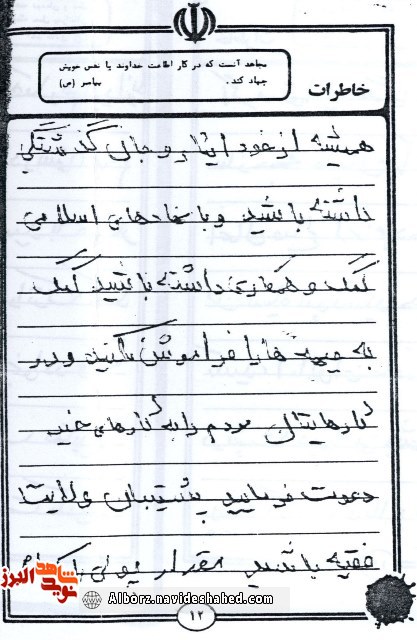 مجاهد آنست که در کار اطاعت خداوند با نفس خویش
جهاد کند.
پیامبر (ص)
خاطرات
همیشه از خود ایثار و جان گذشتگی
داشته باشید و با نهادهای اسلامی
کمک و همکاری داشته باشید کمک
به جبهه ها را فراموش نکنید و در
کارهایتان مردم را به کارهای خیر
دعوت فرمایید پشتیبان ولایت
فقیه باشید
شاهد
نوید
البرز
Alborz.navideshahed.com
۱۲